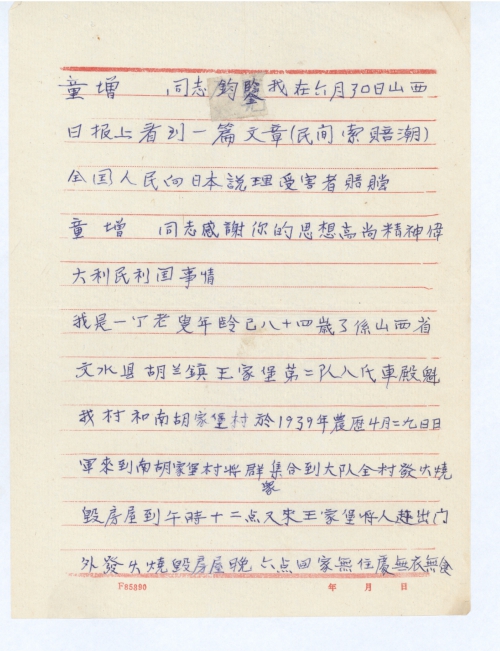 童增　　同志鈞鑒我在六月30日山西
日报上看到一篇文章(民间索赔潮)
全国人民向日本説理受害者賠賞
童增　　同志感謝你的思想高尚精神偉
大利民利国事情
我是一个老叟年龄已八十四歲了係山西省
文水县胡兰鎮王家堡第二队人氏車殿魁
我村和南胡家堡村於1939年農历4月二九日日
軍來到南胡家堡村將群集合到大队全村發火燒
衆
毀房屋到午時十二点又來王家堡將人趕出门
外發火燒毀房屋晚六点回家無住處無衣無食
F85890　年　月　日